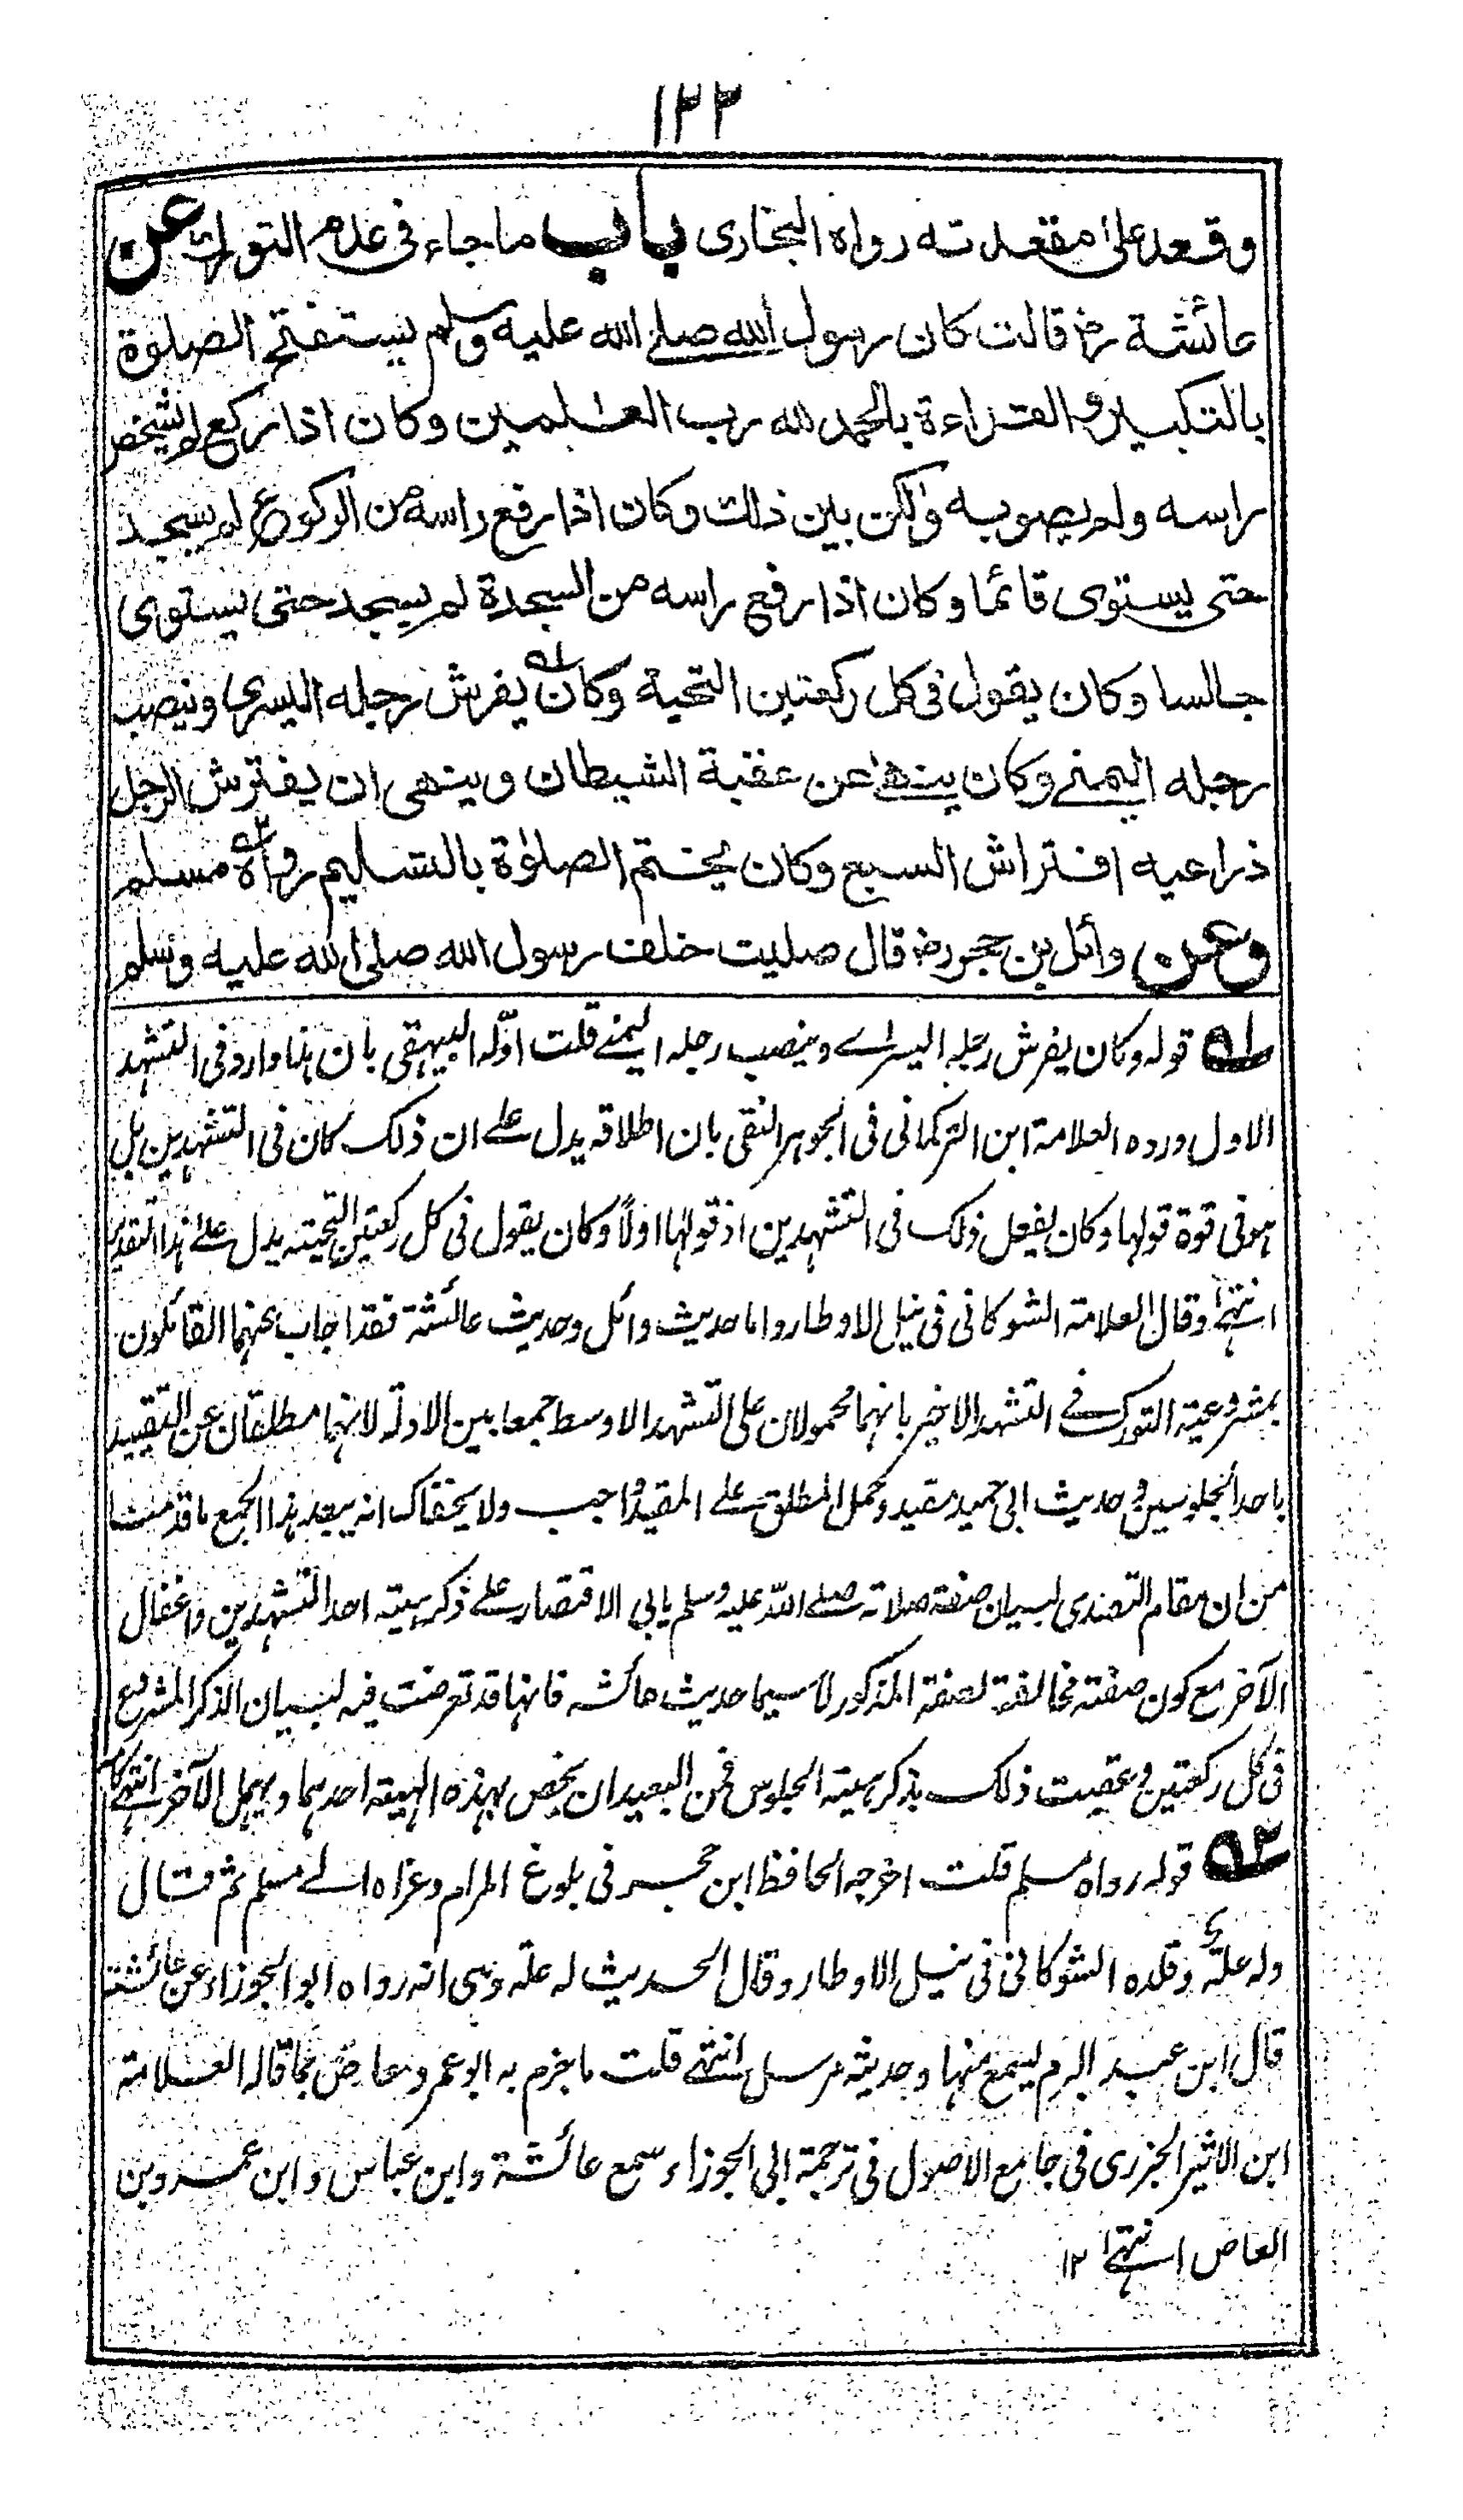 ١٢٢
وقعد على مقعدته رواه البخارى باب ما جاء فى عدم التورك عن
عائشة رض قالت كان رسول الله صلے الله عليه وسلم يستفتح الصلوة
بالتكبير والقراءة بالحمد لله رب العٰلمين وكان اذا ركع لم يشخص
راسه ولم يصوبه ولكن بين ذلك وكان اذا رفع راسه من الركوع لم يسجد
حتى يستوى قائما وكان اذا رفع راسه من السجدة لم يسجد حتى يستوى
جالسا وكان يقول فى كل ركعتين التحية وكان ١ه يفرش رجله اليسرى وينصب
رجله اليمنے وكان ينهٰے عن عقبة الشيطان وينهى ان يفترش الرجل
ذراعيه افتراش السبع وكان يختم الصلوٰة بالتسليم رواه ٢ه مسلم
وعن وائل بن حجر رض قال صليت خلف رسول الله صلى الله عليه وسلم
١ه قوله وكان يفرش رجله اليسراے وينصب رجله اليمنے قلت اوّله البيهقى بان هذا وارد فى التشهد
الاول ورده العلامة ابن التركمانى فى الجوهر النقى بان اطلاقه يدل علے ان ذلك كان فى التشهدين بل
هو فى قوة قولها وكان يفعل ذلك فى التشهدين اذ قولها اولاً وكان يقول فى كل ركعتين التحيته يدل علے هذا التقدير
انتهٰے وقال العلامة الشوكانى فى نيل الاوطار واما حديث وائل وحديث عائشة فقد اجاب عنهما القائلون
بمشروعية التورك فے التشهد الاخير بانهما محمولان على التشهد الاوسط جمعا بين الادلة لانهما مطلقان عن التقييد
باحد الجلوسين وحديث ابى حميد مقيد وحمل المطلق علے المقيد واجب ولا يخفاك انه يبعد هذا الجمع ما قدمنا
من ان مقام التصدى لبيان صفة صلاته صلے الله عليه وسلم يابى الاقتصار علے ذكر هيئة احد التشهدين واغفال
الآخر مع كون صفته مخالفة لصفة المذكور لا سيما حديث عائشه فانها قد تعرضت فيه لبيان الذكر المشروع
فى كل ركعتين وعقبت ذلك بذكر هيئة الجلوس فمن البعيد ان يخص بهذه الهيئة احدهما ويهمل الآخر انتهٰے كلامه
٢ه قوله رواه مسلم قلت اخرجه الحافظ ابن حجر فى بلوغ المرام وعزاه الے مسلم ثم قال
وله علة وقلده الشوكانى فى نيل الاوطار وقال الحديث له علة وهى انه رواه ابو الجوزاء عن عائشة
قال ابن عبد البر لم يسمع منها وحديثه مرسل انتهٰے قلت ما جزم به ابو عمر ومعارض بما قاله العلامة
ابن الاثير الجزرى فى جامع الاصول فى ترجمة ابى الجوزاء سمع عائشة وابن عباس وابن عمرو بن
العاص انتهٰے ١٢